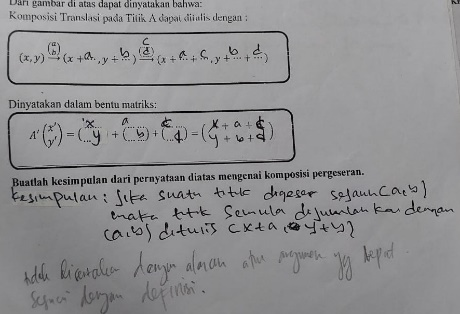 Dari gambar di atas dapat dinyatakan bahwa:
Komposisi Translasi pada Titik A dapat ditulis dengan :
(x, y) →(a b) (x + a.., y + b) →(c d) (x + a + c, y + b + d)
Dinyatakan dalam bentu matriks:
A' (x' y') = (x y) + (a b) + (c d) = (x + a + c y + b + d)
Buatlah kesimpulan dari pernyataan diatas mengenai komposisi pergeseran.
Kesimpulan : Jika suatu titik digeser sejauh (a,b)
maka titik semula dijumlah kan dengan
(a,b) ditulis (x+a, y+b)
tidak dengan alasan atau argumen yg tepat
sesuai dengan definisi.